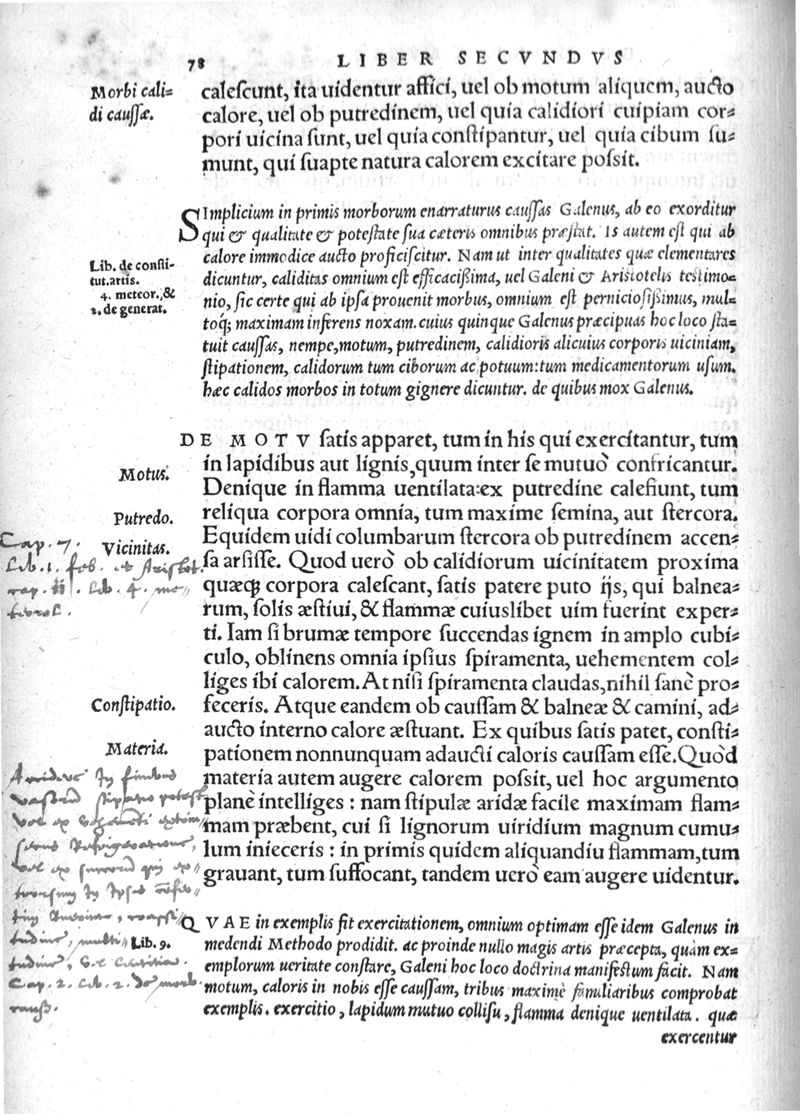 78 LIBER SECVNDVS
Morbi cali=
di caussæ.
calescunt, ita uidentur affici, uel ob motum aliquem, aucto
calore, uel ob putredinem, uel quia calidiori cuipiam cor=
pori uicina sunt, uel quia constipantur, uel quia cibum su=
munt, qui suapte natura calorem excitare possit.
SImplicium in primis morborum enarraturus caussas Galenus, ab eo exorditur
qui & qualitate & potestate sua cæteris omnibus præstat. Is autem est qui ab
calore immodice aucto proficiscitur. Nam ut inter qualitates quæ elementares
dicuntur, caliditas omnium est efficacissima, uel Galeni & Aristotelis testimo=
nio, sic certe qui ab ipsa prouenit morbus, omnium est perniciosissimus, mul=
toq́; maximam inferens noxam. cuius quinque Galenus præcipuas hoc loco sta=
tuit caussas, nempe, motum, putredinem, calidioris alicuius corporis uiciniam,
stipationem, calidorum tum ciborum ac potuum: tum medicamentorum usum.
hæc calidos morbos in totum gignere dicuntur. de quibus mox Galenus.
Lib. de consti-
tut. artis.
4. meteor., &
2. de generat.
DE MOTV satis apparet, tum in his qui exercitantur, tum
in lapidibus aut lignis, quum inter se mutuò confricantur.
Denique in flamma uentilata: ex putredine calefiunt, tum
reliqua corpora omnia, tum maxime semina, aut stercora.
Equidem uidi columbarum stercora ob putredinem accen=
sa arsisse. Quod uerò ob calidiorum uicinitatem proxima
quæq; corpora calescant, satis patere puto ijs, qui balnea=
rum, solis æstiui, & flammæ cuiuslibet uim fuerint exper=
ti. Iam si brumæ tempore succendas ignem in amplo cubi=
culo, oblinens omnia ipsius spiramenta, uehementem col=
liges ibi calorem. At nisi spiramenta claudas, nihil sanè pro=
feceris. Atque eandem ob caussam & balneæ & camini, ad=
aucto interno calore æstuant. Ex quibus satis patet, consti=
pationem nonnunquam adaucti caloris caussam esse. Quòd
materia autem augere calorem possit, uel hoc argumento
planè intelliges: nam stipulæ aridæ facile maximam flam=
mam præbent, cui si lignorum uiridium magnum cumu=
lum inieceris: in primis quidem aliquandiu flammam, tum
grauant, tum suffocant, tandem uerò eam augere uidentur.
Motus.
Putredo.
Vicinitas.
Cap. 7.
Lib. 1. feb. et Aristot.
cap. ii. Lib. 4. me=
teorol.
Constipatio.
Materia.
QVAE in exemplis fit exercitationem, omnium optimam esse idem Galenus in
medendi Methodo prodidit. ac proinde nullo magis artis præcepta, quàm ex=
emplorum ueritate constare, Galeni hoc loco doctrina manifestum facit. Nam
motum, caloris in nobis esse caussam, tribus maximè familiaribus comprobat
exemplis. exercitio, lapidum mutuo collisu, flamma denique uentilata. quæ
exercentur
Lib. 9.
Cap. 2. Lib. 2. de morb.